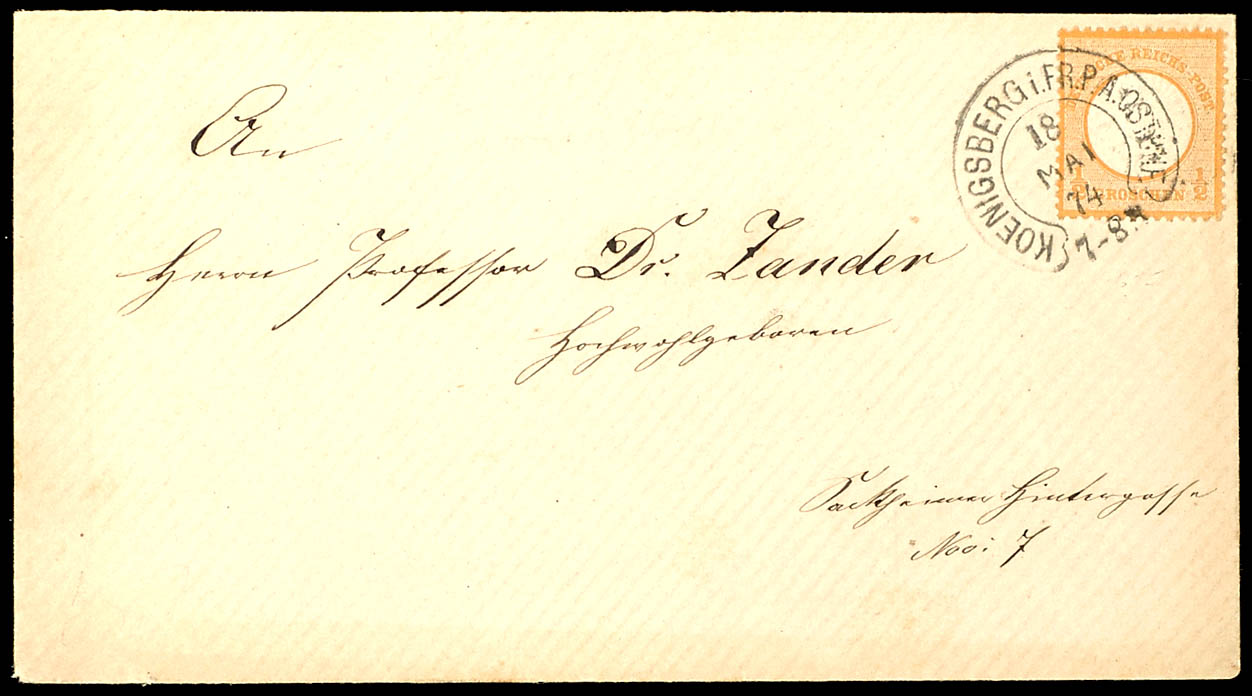 An
Herrn Professor Dr. Zander
Hochwohlgeboren
Sackheimer Hintergasse
No: 7
KOENIGSBERG i. PR. P.A.
18
MAI
74
7-8
REICHS-POST
1/2 GROSCHEN 1/2